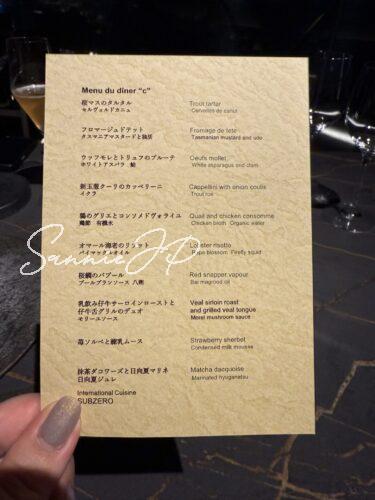 Menu du dîner "c"
桜マスのタルタル Trout tartar
セルヴェルドカニュ Cervelles de canut
フロマージュドテット Fromage de tete
タスマニアマスタードと独活 Tasmanian mustard and udo
ウッフモレとトリュフのブルーテ Oeufs mollet
ホワイトアスパラ 蛤 White asparagus and clam
新玉葱クーリのカッペリーニ Cappellini with onion coulis
イクラ Trout roe
鶉のグリエとコンソメドヴォライユ Quail and chicken consomme
鶏節 有機水 Chicken broth Organic water
オマール海老のリゾット Lobster risotto
パイマックァオイル Rape blossom Firefly squid
桜鯛のバプール Red snapper vapour
ブールブランソース 八朔 Bai magrood oil
乳飲み仔牛サーロインローストと Veal sirloin roast
仔牛舌グリルのデュオ and grilled veal tongue
モリーユソース Morel mushroom sauce
苺ソルベと練乳ムース Strawberry sherbet
Condensed milk mousse
抹茶ダコワーズと日向夏マリネ Matcha dacquoise
日向夏ジュレ Marinated hyuganatsu
International Cuisine
SUBZERO